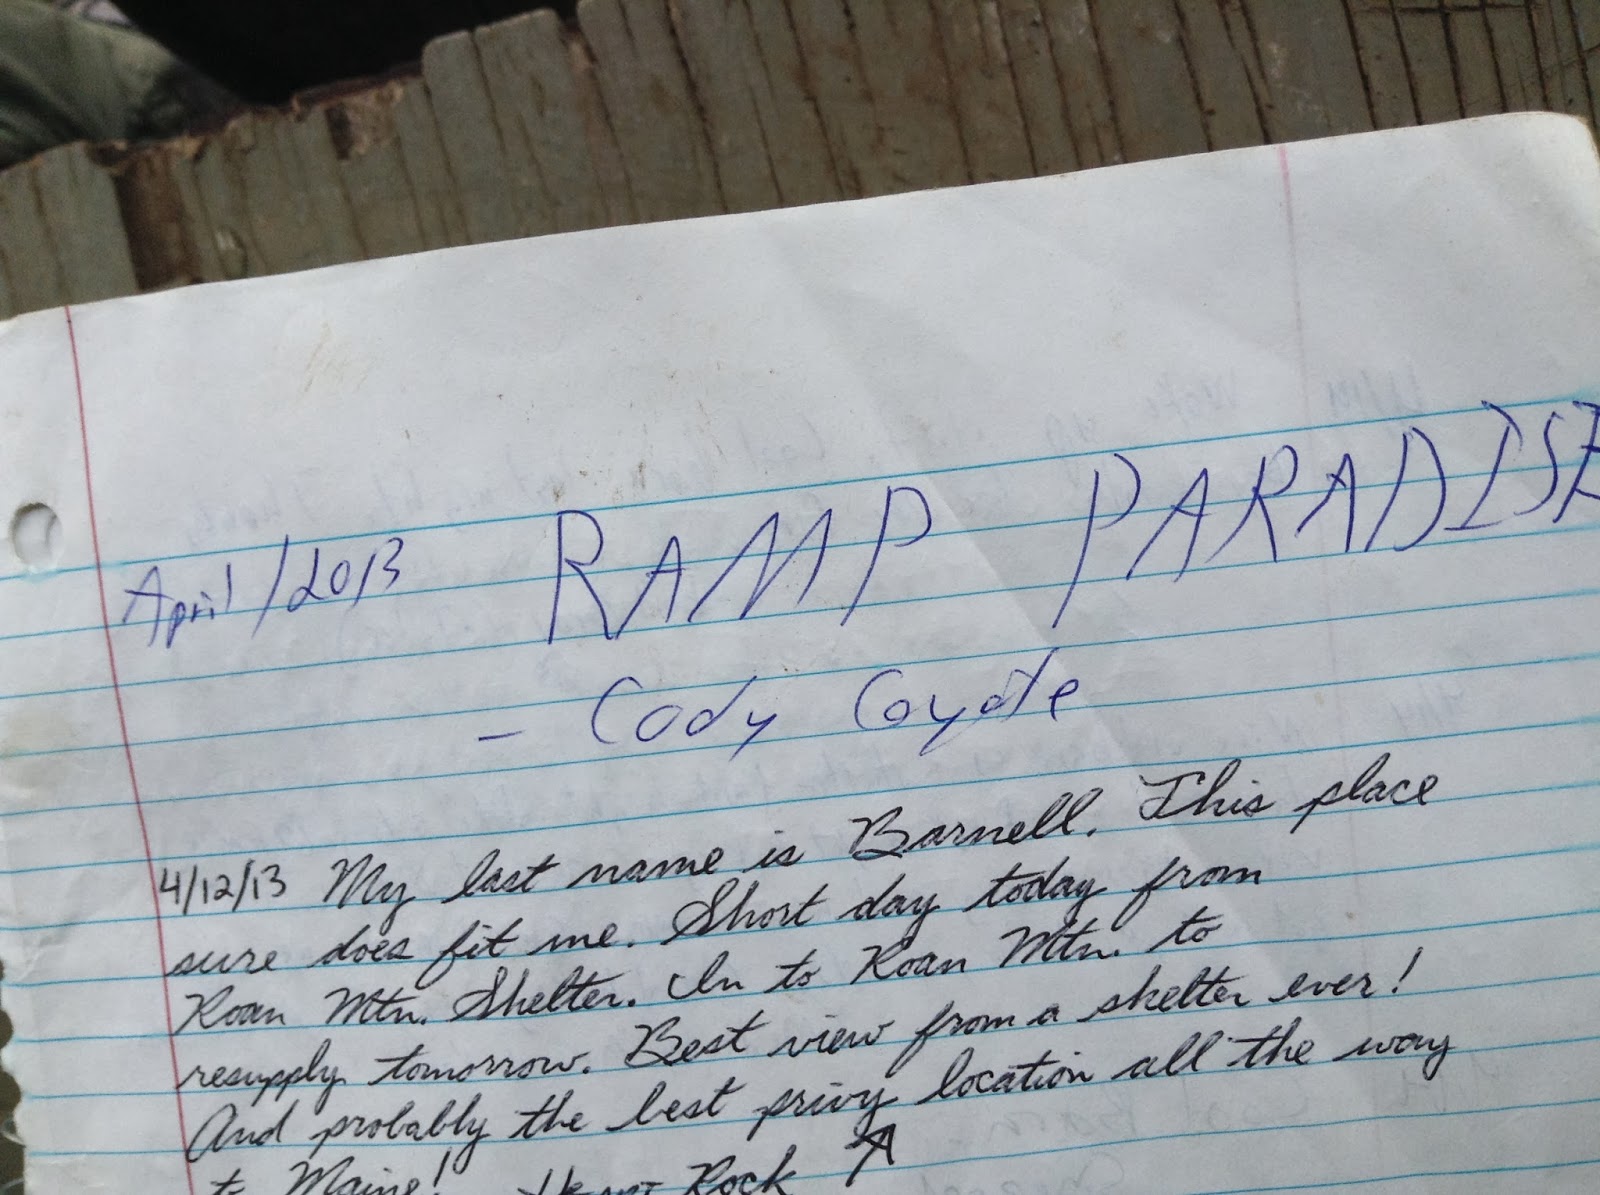 April/2013 RAMP PARADISE
- Cody Coyote
4/12/13 My last name is Barnell. This place
sure does fit me. Short day today from
Roan Mtn. Shelter. In to Roan Mtn. to
resupply tomorrow. Best view from a shelter ever!
And probably the best privy location all the way
to Maine! Rock